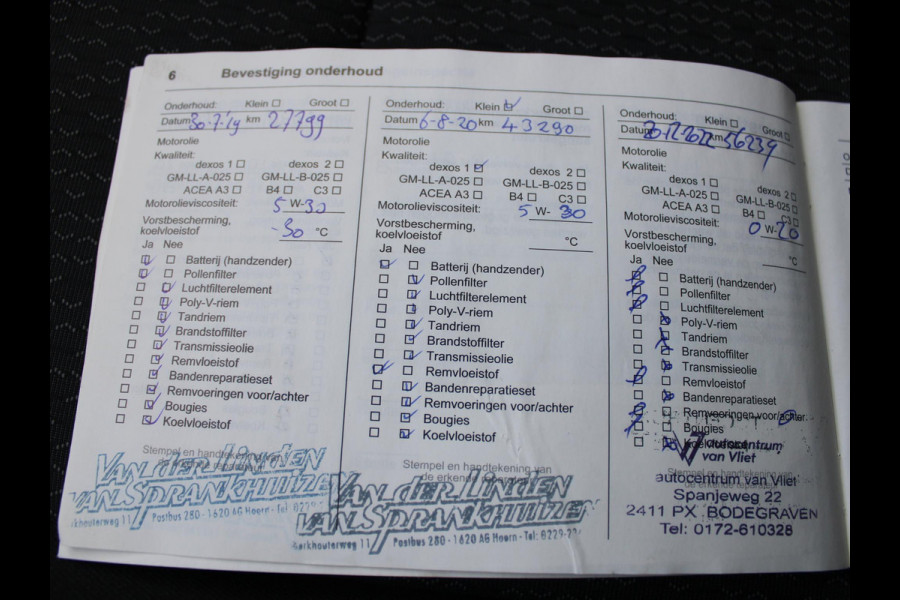 6 Bevestiging onderhoud
Onderhoud: Klein Groot
Datum 30-7-'19 km 27799
Motorolie
Kwaliteit:
dexos 1 dexos 2
GM-LL-A-025 GM-LL-B-025
ACEA A3 B4 C3
Motorolieviscositeit: 5 W-30
Vorstbescherming,
koelvloeistof -30 °C
Ja Nee
Batterij (handzender)
Pollenfilter
Luchtfilterelement
Poly-V-riem
Tandriem
Brandstoffilter
Transmissieolie
Remvloeistof
Bandenreparatieset
Remvoeringen voor/achter
Bougies
Koelvloeistof
Stempel en handtekening van
VAN DER LINDEN
VAN SPRANKHUIZEN
Postbus 280 - 1620 AG Hoorn - Tel: 0229
Onderhoud: Klein Groot
Datum 6-8-20 km 43290
Motorolie
Kwaliteit:
dexos 1 dexos 2
GM-LL-A-025 GM-LL-B-025
ACEA A3 B4 C3
Motorolieviscositeit: 5 W-30
Vorstbescherming,
koelvloeistof °C
Ja Nee
Batterij (handzender)
Pollenfilter
Luchtfilterelement
Poly-V-riem
Tandriem
Brandstoffilter
Transmissieolie
Remvloeistof
Bandenreparatieset
Remvoeringen voor/achter
Bougies
Koelvloeistof
Stempel en handtekening van
de erkende
VAN DER LINDEN
VAN SPRANKHUIZEN
kerkhouterweg 11 Postbus 280 - 1620 AG Hoorn - Tel: 0229-22
Onderhoud: Klein Groot
Datum 20-12-2022 km 56239
Motorolie
Kwaliteit:
dexos 1 dexos 2
GM-LL-A-025 GM-LL-B-025
ACEA A3 B4 C3
Motorolieviscositeit: 0 W-20
Vorstbescherming,
koelvloeistof °C
Ja Nee
Batterij (handzender)
Pollenfilter
Luchtfilterelement
Poly-V-riem
Tandriem
Brandstoffilter
Transmissieolie
Remvloeistof
Bandenreparatieset
Remvoeringen voor/achter
Bougies
autocentrum
van Vliet
Stempel en handtekening van
autocentrum van Vliet
Spanjeweg 22
2411 PX BODEGRAVEN
Tel: 0172-610328